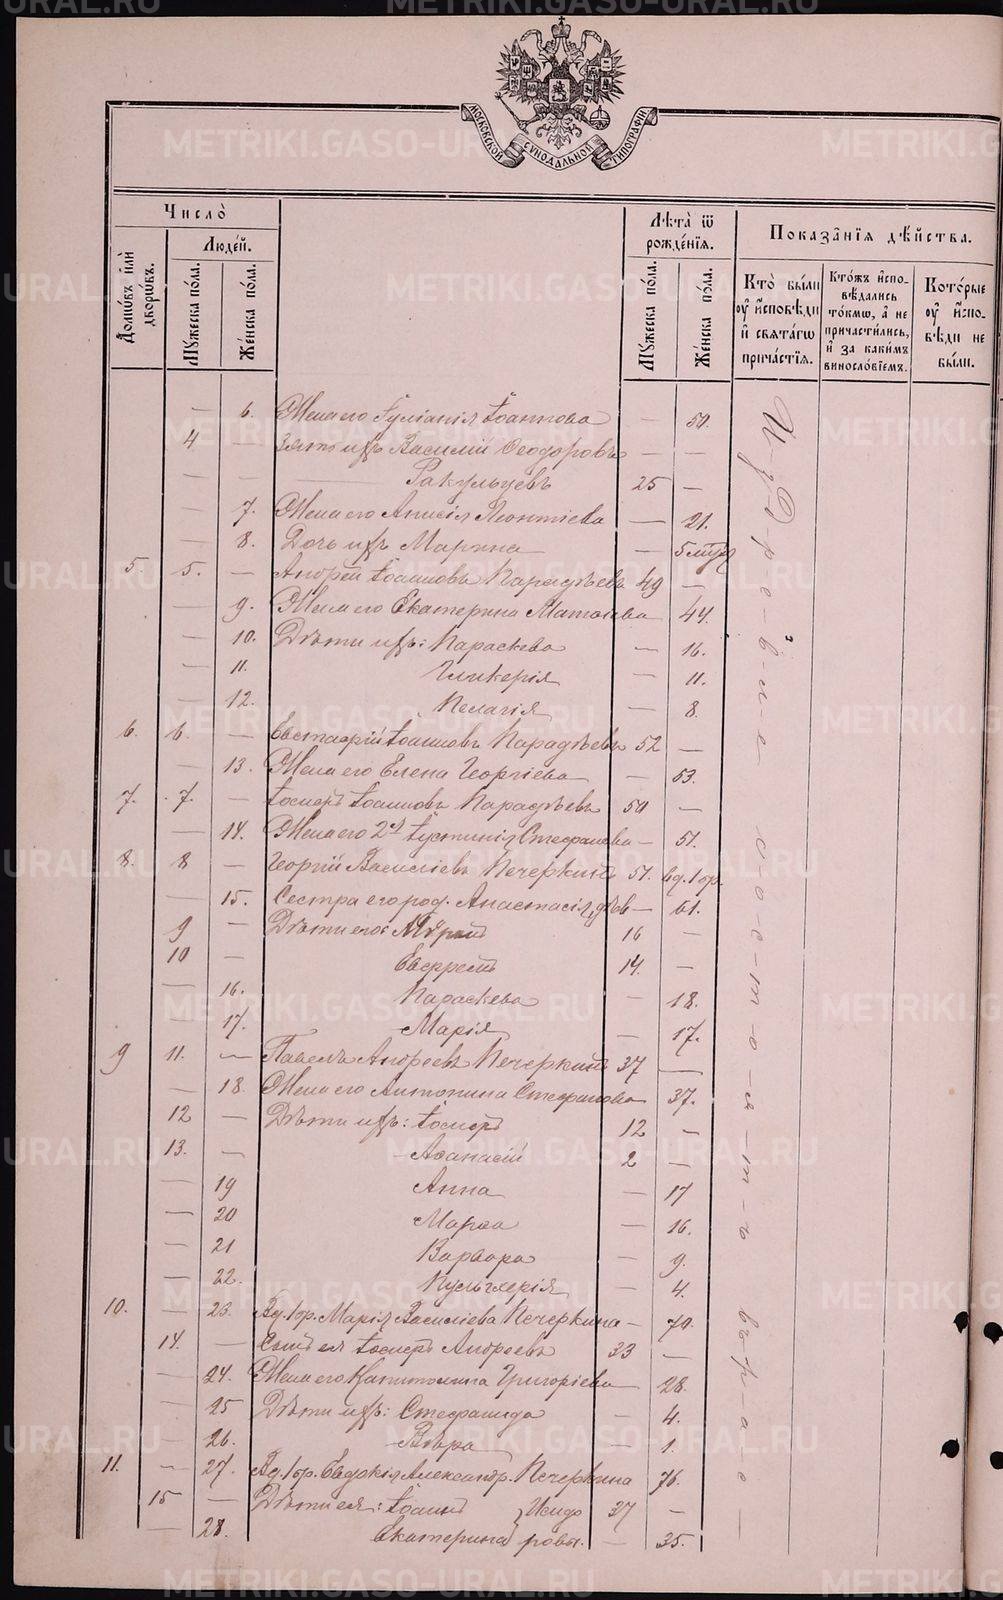 МОСКОВСКОЙ СѴНОДАЛЬНОЙ ТИПОГРАФІИ
Число̀
Людей.
Домѡвъ и҆лѝ дворѡвъ.
Мꙋжеска по́ла.
Же́нска по́ла.
Лѣта̀ ѿ рожде́нїѧ.
Мꙋжеска по́ла.
Же́нска по́ла.
Показа̑нїѧ дѣ́йства.
Кто̀ бы́ли оу҆ и҆сповѣди и҆ свѧта́гѡ прича́стїѧ.
Кто́жъ и҆спо-вѣдались то́кмѡ, а҆ не причасти́лись, и҆ за каки́мъ винослові́емъ.
Кото́рые оу҆ и҆спо-вѣди не бы́ли.
— 6. Жена его Іуліанія Іоаннова — 50.
4 — Зять ихъ Василій Ѳеодоровъ — —
— — Ракульцевъ 25 —
— 7. Жена его Анисія Леонтіева — 21.
— 8. Дочь ихъ Марина — 5 мѣс
5. 5. — Андрей Іоанновъ Парадѣевъ 49 —
— 9. Жена его Екатерина Матѳіева — 44.
— 10. Дѣти ихъ: Параскева — 16.
— 11. Гликерія — 11.
— 12. Пелагія — 8.
6. 6. — Евстафій Іоанновъ Парадѣевъ 52 —
— 13. Жена его Елена Георгіева — 53.
7. 7. — Іосифъ Іоанновъ Парадѣевъ 50 —
— 14. Жена его 2я Іустинія Стефанова — 51.
8. 8 — Георгій Василіевъ Печеркинъ 51. вд. 1 бр.
— 15. Сестра его род. Анастасія, дѣв — 61.
9 — Дѣти его: 16 —
10 — Евфремъ 14. —
— 16. Параскева — 18.
— 17. Марія — 17.
9 11. — Павелъ Андреевъ Печеркинъ 37 —
— 18. Жена его Антонина Стефанова 37.
12 — Дѣти ихъ: Іосифъ 12 —
13. — Аѳанасій 2 —
— 19 Анна — 17
— 20 Марѳа — 16.
— 21 Варвара — 9.
— 22. Пульхерія — 4.
10. — 23. Вд. 1 бр. Марія Василіева Печеркина — 70.
14. — Сынъ ея Іосифъ Андреевъ 33 —
— 24. Жена его Капитолина Григоріева — 28.
— 25 Дѣти ихъ: Стефанида — 4.
— 26. Вѣра — 1.
11. — 27. Вд. 1 бр. Евдокія Александр. Печеркина 76.
15 — Дѣти ея: Іоаннъ } Исидо 37 —
— 28. Екатерина ровы. — 35.
И-з-д-р-е-в-л-е с-о-с-т-о-и-т-ъ в-ъ р-а-с-
METRIKI.GASO-URAL.RU